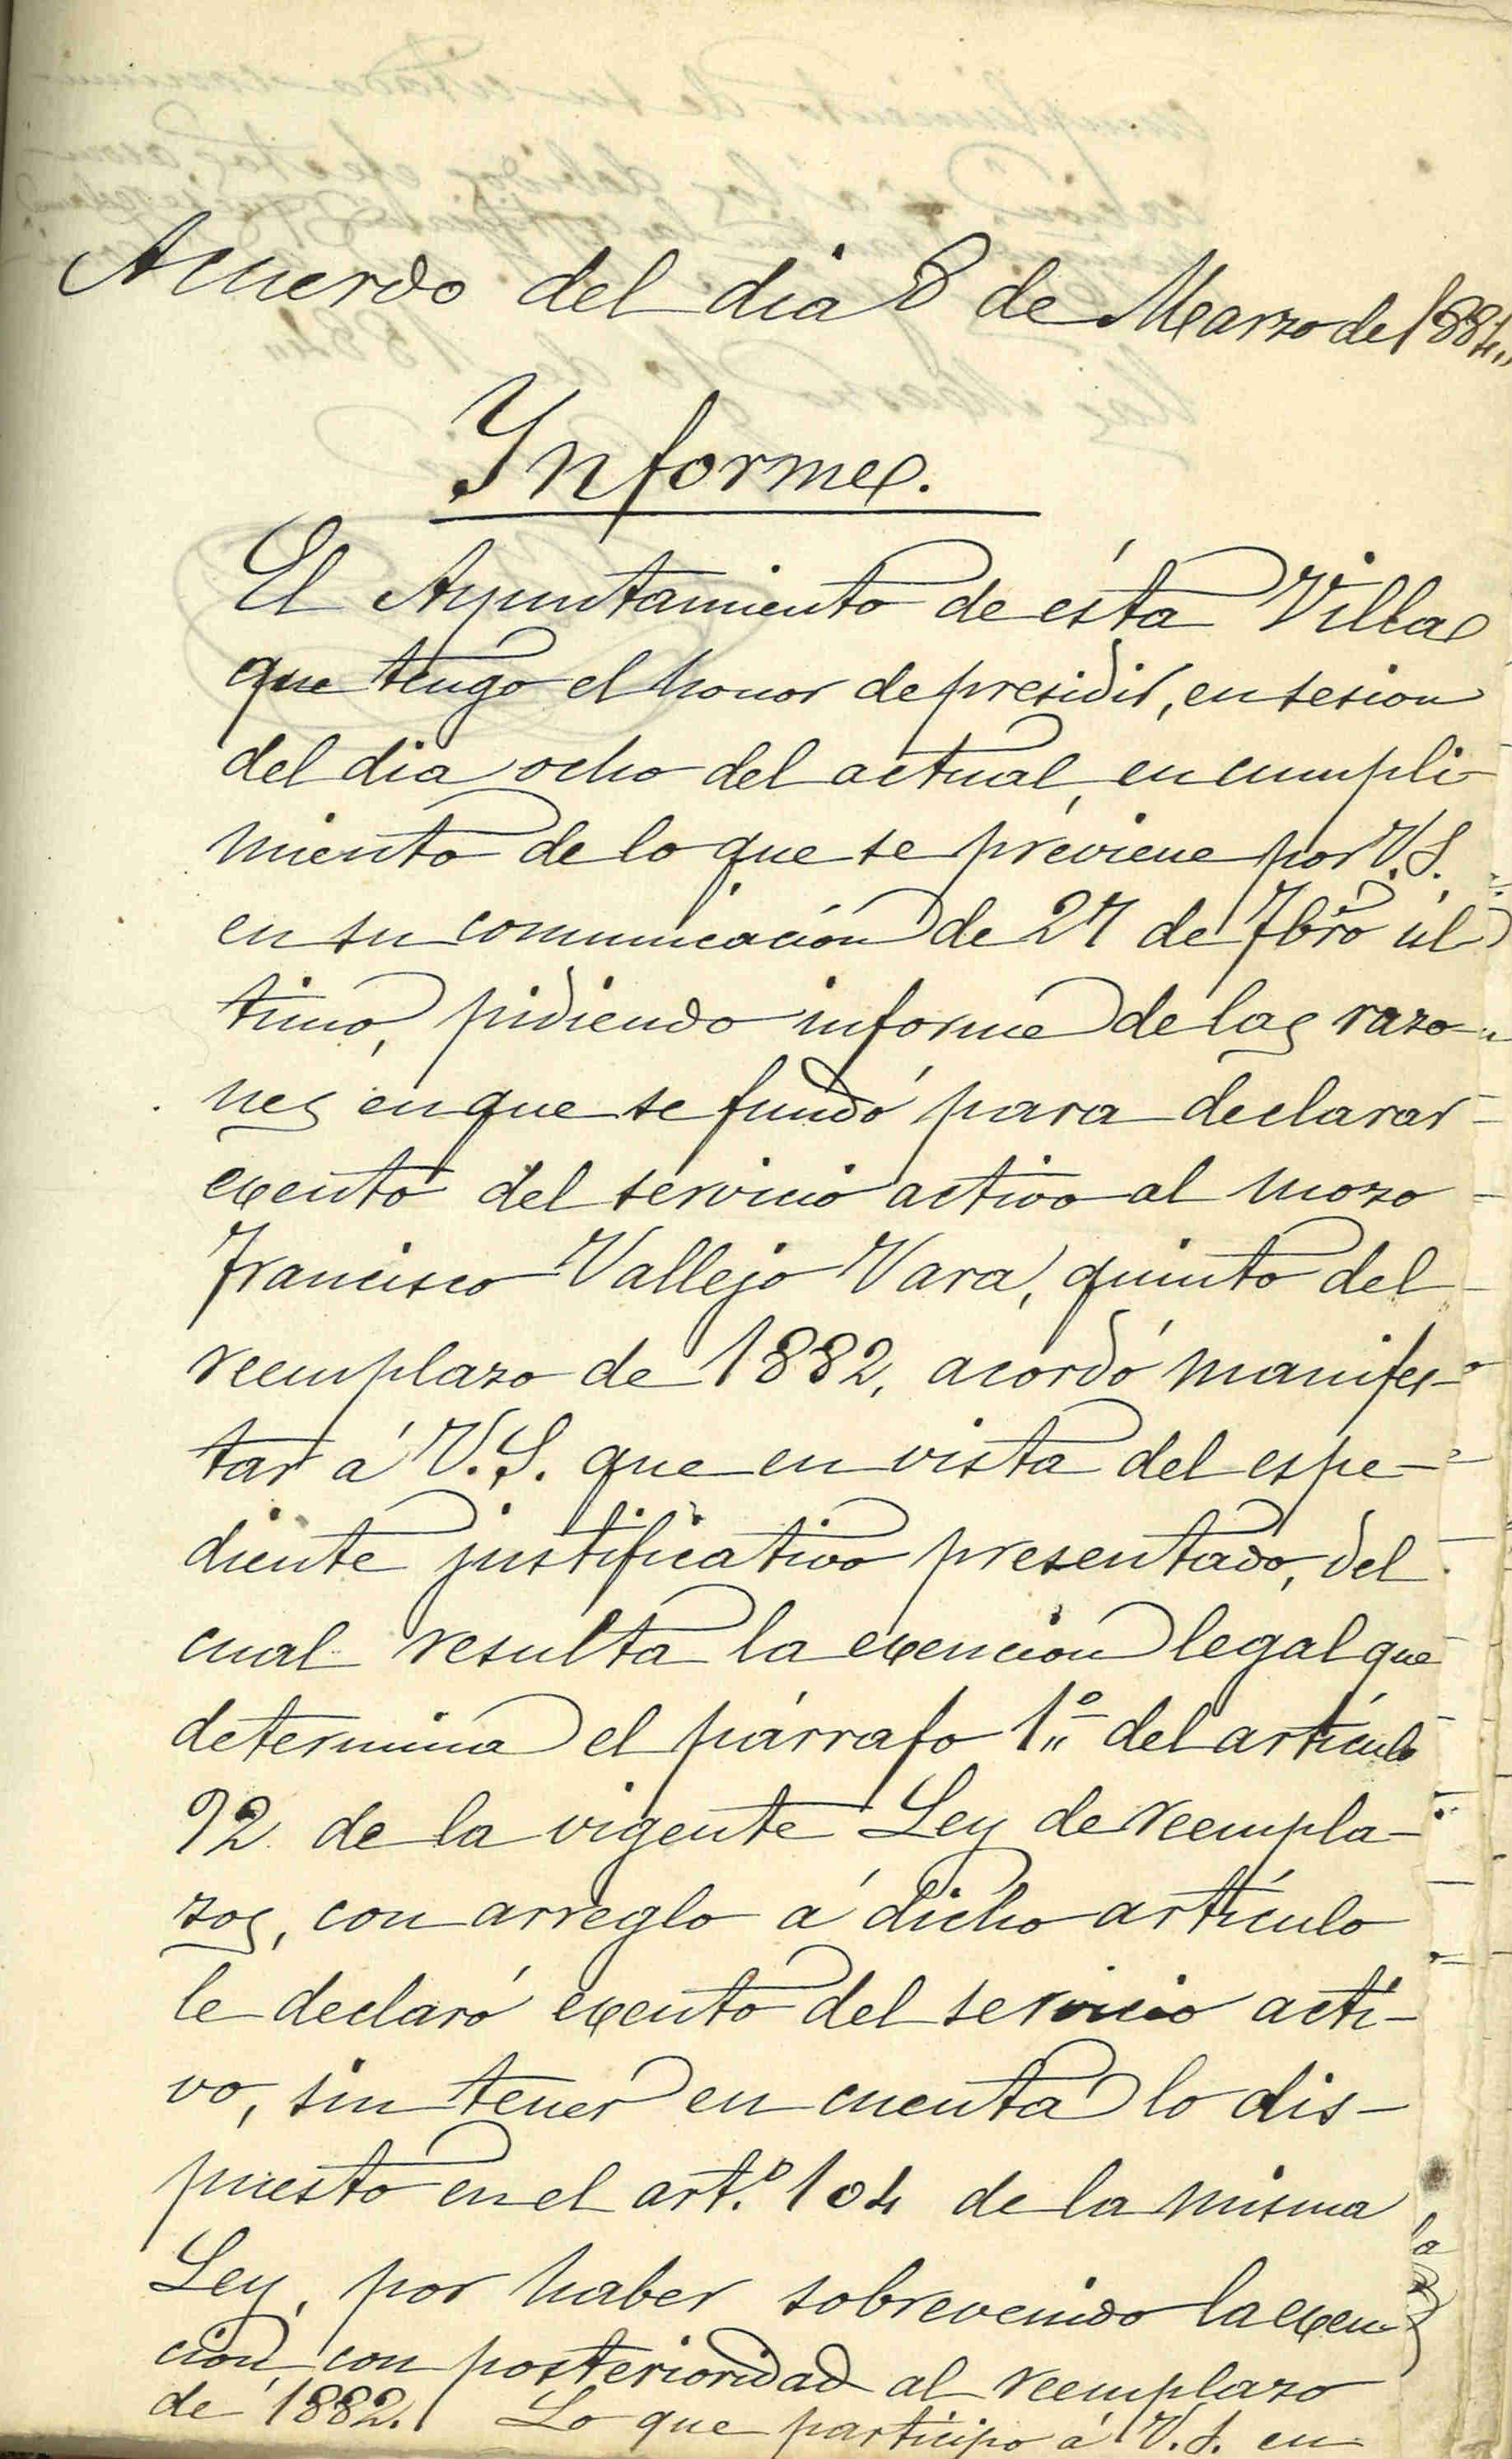 Acuerdo del dia 8 de Marzo de 1884,,
Informe.
El Ayuntamiento de ésta Villa
que tengo el honor de presidir, en sesion
del dia ocho del actual, en cumpli-
miento de lo que se previene por V.S.
en su comunicación de 27 de Fbro úl
timo, pidiendo informe de las razo-
nes en que se fundó para declarar
exento del servicio activo al mozo
Francisco Vallejo Vara, quinto del
reemplazo de 1882, acordó manifes-
tar á V.S. que en vista del espe-
diente justificativo presentado, del
cual resulta la exencion legal que
determina el párrafo 1º del artículo
92 de la vigente Ley de reempla-
zos, con arreglo á dicho artículo
le declaró exento del servicio acti-
vo, sin tener en cuenta lo dis-
puesto en el art.º 104 de la misma
Ley, por haber sobrevenido la exen
cion con posterioridad al reemplazo
de 1882. Lo que participo á V.S. en